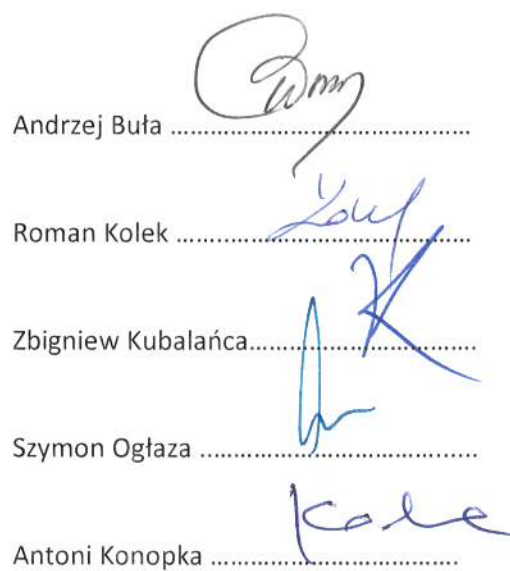 Andrzej Buła ........................................
Roman Kolek ........................................
Zbigniew Kubalańca...............................
Szymon Ogłaza .....................................
Antoni Konopka ....................................